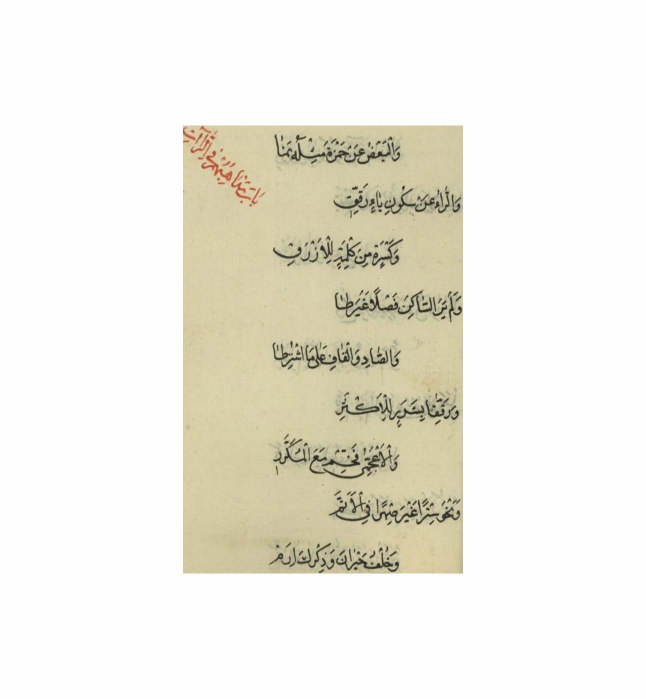 وَالْبَعْضُ عَنْ حَمْزَةَ مِثْلُهُ نَمَا
باب مذاهبهم في الراءات
وَالرَّاءَ عَنْ سُكُونِ يَاءٍ رَقِّقِ
وَكَسْرَةٍ مِنْ كِلْمَةٍ لِلْأَزْرَقِ
وَلَمْ يَرَ السَّاكِنَ فَصْلًا غَيْرَ طَا
وَالصَّادِ وَالْقَافِ عَلَى مَا اشْتُرِطَا
وَرَقِّقًا بِشَرَرٍ لِلْأَكْثَرِ
وَالْأَعْجَمِي فَخِّمْ مَعَ الْمُكَرَّرِ
وَنَحْوَ سِتْرًا غَيْرَ صِهْرًا فِي الْأَتَمّ
وَخُلْفُ حَيْرَانَ وَذِكْرَكَ إِرَمْ